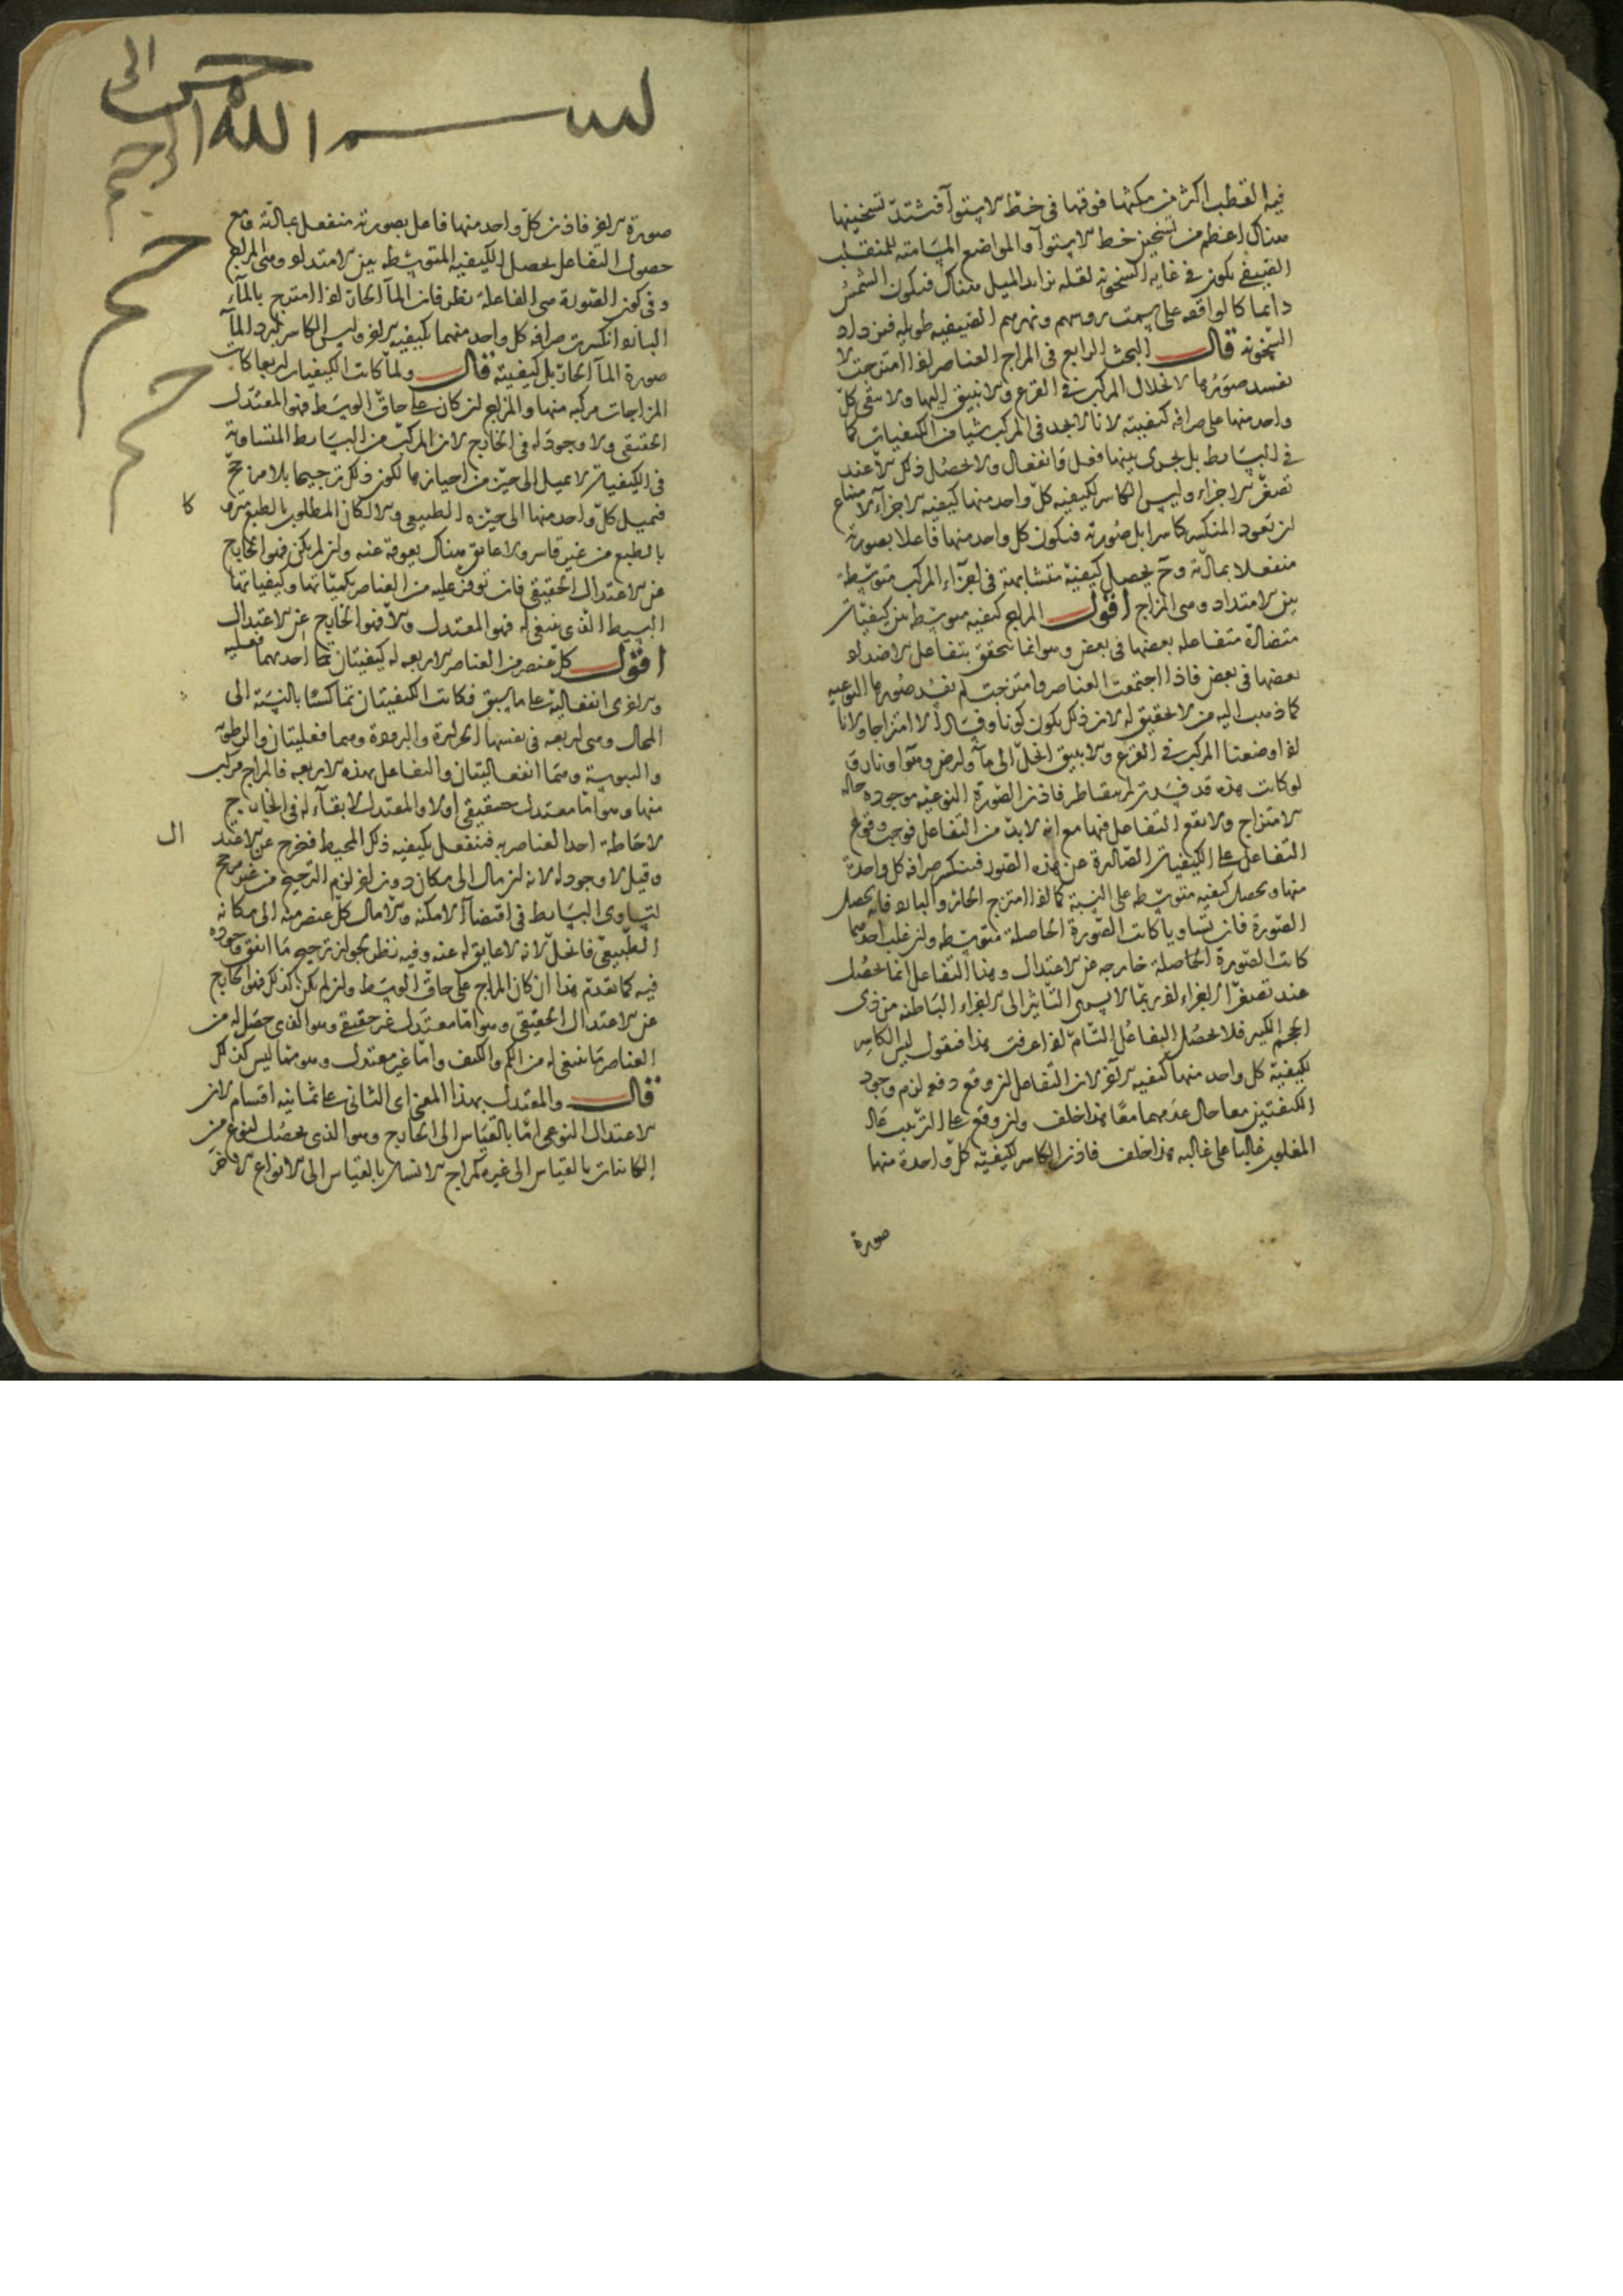 فيه القطب اكثر من مكثها فوقها فى خط الاستوآ فيشتد تسخينها
هناك اعظم من تسخين خط الاستوآ والمواضع المسامته للمنقلب
الصيفى يكون فى غايه السخونه لقله تزايد الميل هناك فيكون الشمس
دايما كالواقفه على سمت روسهم ونهارهم الصيفيه طويله فيزداد
السخونه قال البحث الرابع فى المزاج العناصر اذا امتزجت لا
تفسد صورها لانحلال المركب فى القرع والانبيق اليها ولا يبقى كل
واحد منها على صرافه كيفيته لانا لا نجد فى المركب شيا من الكيفيات كما
فى البسايط بل يجرى بينها فعل وانفعال ولا يحصل ذلك الا عند
تصغر الاجزاء وليس الكاسر لكيفيه كل واحد منها كيفيه الاخر لامتناع
ان تعود المنكسر كاسرا بل صورته فيكون كل واحد منها فاعلا بصورته
منفعلا بمادته وح يحصل كيفية متشابهة فى اجزاء المركب متوسطة
بين الاضداد وهى المزاج اقول المزاج كيفيه متوسطه بين كيفيات
متضادة متفاعله بعضها فى بعض وهو انما يتحقق بتفاعل الاضداد
بعضها فى بعض فاذا اجتمعت العناصر وامتزجت لم تفسد صورها النوعيه
كما ذهب اليه من لا تحقيق له لان ذلك يكون كونا وفسادا لا امتزاجا ولانا
اذا وضعنا المركب فى القرع والانبيق انحل الى مآ وارض وهوآ ونار
لو كانت هذه قد فسدت لم يتقاطر فاذن الصورة النوعيه موجوده حاله
الامتزاج ولا يقع التفاعل فيها مع انه لا بد من التفاعل فوجب وقوع
التفاعل على الكيفيات الصادرة عن هذه الصور فينكسر صرافه كل واحدة
منها ويحصل كيفيه متوسطه على النسبة كما اذا امتزج الحار والبارد فانه يحصل
الصورة فان تساويا كانت الصورة الحاصلة متوسطه وان غلب احدهما
كانت الصورة الحاصلة خارجه عن الاعتدال وهذا التفاعل انما يحصل
عند تصغر الاجزاء اذ ربما لا يسرى التاثير الى الاجزاء الباطنه من ذى
الحجم الكبير فلا يحصل التفاعل التام اذا عرفت هذا فنقول ليس الكاسر
لكيفية كل واحد منها كيفيه الاخر لان التفاعل ان وقع دفعه لزم وجود
الكيفتين معا حال عدمهما معا هذا خلف وان وقع على الترتيب عاد
المغلوب غالبا على غالبه هذا خلف فاذن الكاسر لكيفيه كل واحدة منها
صورة
بسم الله الرحمن الرحيم
صورة الاخر فاذن كل واحد منها فاعل بصورته منفعل بمادته ومع
حصول التفاعل يحصل الكيفيه المتوسطه بين الاضداد وهى المزاج
وفى كون الصورة هى الفاعلة نظر فان المآ الحار اذا امتزج بالمآء
البارد انكسرت صرافه كل واحد منهما بكيفيه الاخر وليس الكاسر لبرد المآ
صورة المآ الحار بل كيفيته قال ولما كانت الكيفيات اربعا كانت
المزاجات مركبه منها والمزاج ان كان على حاق الوسط فهو المعتدل
الحقيقى ولا وجود له فى الخارج لان المركب من البسايط المتساوية
فى الكيفيات لا يميل الى حيز من احيازها لكون ذلك ترجيحا بلا مرجح
فيميل كل واحد منها الى حيزه الطبيعى والا لكان المطلوب بالطبع متروكا
بالطبع من غير قاسر ولا عايق هناك يعوقه عنه وان لم يكن فهو الخارج
عن الاعتدال الحقيقى فان توفر عليه من العناصر بكمياتها وكيفياتها
البسيط الذى ينبغى له فهو المعتدل والا فهو الخارج عن الاعتدال
اقول كل عنصر من العناصر الاربعه له كيفيتان احدهما فعليه
والاخرى انفعالية على ما سبق فكانت الكيفيتان ثمانيا بالنسبة الى
المحال وهى اربعه فى نفسها الحرارة والبرودة وهما فعليتان والرطوبه
واليبوسة وهما انفعاليتان والتفاعل بهذه الاربعه فالمزاج مركب
منها وهو اما معتدل حقيقى اولا والمعتدل لا بقآء له فى الخارج
لاحاطة احد العناصر به فينفعل بكيفيه ذلك المحيط فيخرج عن الاعتدال
وقيل لا وجود له لانه ان مال الى مكان دون اخر لزم الترجيح من غير مرجح
لتساوى البسايط فى اقتضآ الامكنه والا مال كل عنصر منه الى مكانه
الطبيعى فانحل لانه لا عايق له عنه وفيه نظر لجواز ترجيح ما اتفق وجوده
فيه كما تقدم هذا ان كان المزاج على حاق الوسط وان لم يكن كذلك فهو الخارج
عن الاعتدال الحقيقى وهو اما معتدل غير حقيقى وهو الذى حصل له من
العناصر ما ينبغى له من الكم والكيف واما غير معتدل وهو ما ليس كذلك
قال والمعتدل بهذا المعنى اى الثانى على ثمانيه اقسام لان
الاعتدال النوعى اما بالقياس الى الخارج وهو الذى يحصل لنوع من
الكاينات بالقياس الى غيره كمزاج الانسان بالقياس الى الانواع الاخر